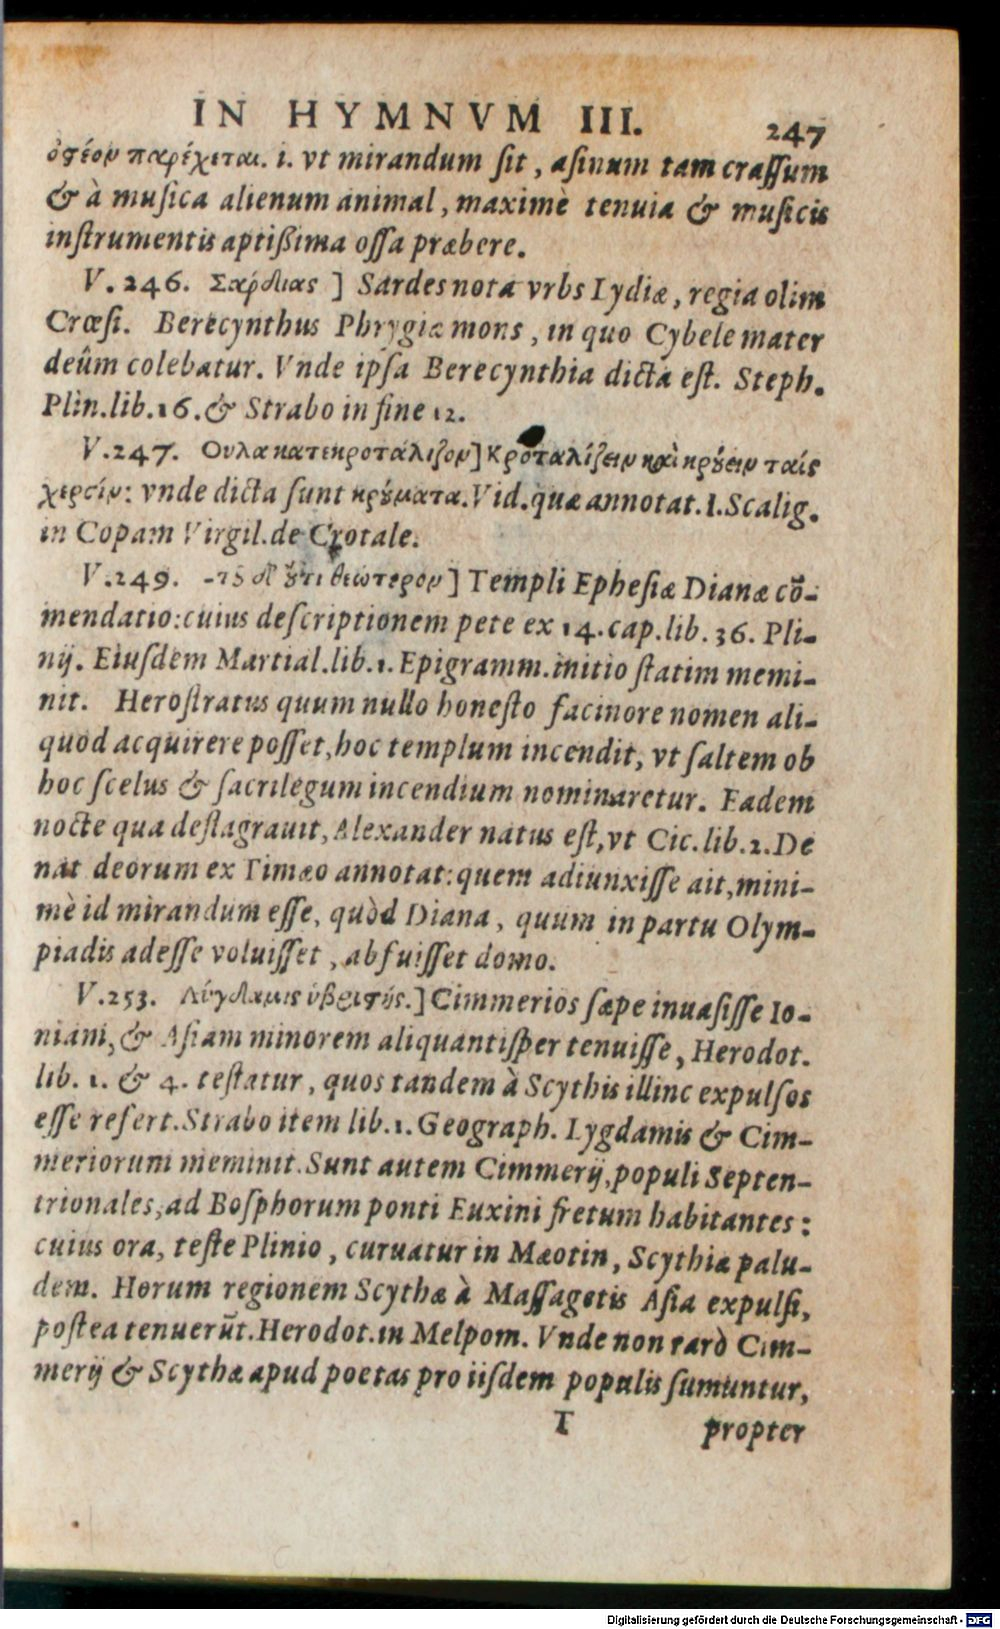 IN HYMNVM III. 247
ὀστέον παρέχεται. i. vt mirandum ſit, aſinum tam craſſum
& à muſica alienum animal, maximè tenuia & muſicis
inſtrumentis aptißima oſſa præbere.
V. 246. Σαρδιας ] Sardes nota vrbs Lydiæ, regia olim
Crœſi. Berecynthus Phrygiæ mons, in quo Cybele mater
deûm colebatur. Vnde ipſa Berecynthia dicta eſt. Steph.
Plin. lib. 16. & Strabo in fine 12.
V. 247. Ουλα κατεκροτάλιζον] Κροταλίζειν καὶ κρύειν ταῖς
χερσίν: vnde dicta ſunt κρύματα. Vid. quæ annotat. I. Scalig.
in Copam Virgil. de Crotale.
V. 249. -τȣ δ' ȣ̓́τι θεώτερον] Templi Epheſiæ Dianæ cō-
mendatio: cuius deſcriptionem pete ex 14. cap. lib. 36. Pli-
nij. Eiuſdem Martial. lib. 1. Epigramm. initio ſtatim memi-
nit. Heroſtratus quum nullo honeſto facinore nomen ali-
quod acquirere poſſet, hoc templum incendit, vt ſaltem ob
hoc ſcelus & ſacrilegum incendium nominaretur. Eadem
nocte qua deflagrauit, Alexander natus eſt, vt Cic. lib. 2. De
nat deorum ex Timæo annotat: quem adiunxiſſe ait, mini-
mè id mirandum eſſe, quòd Diana, quum in partu Olym-
piadis adeſſe voluiſſet, abfuiſſet domo.
V. 253. Λύγδαμις ὑβριστής.] Cimmerios ſæpe inuaſiſſe Io-
niam, & Aſiam minorem aliquantiſper tenuiſſe, Herodot.
lib. 1. & 4. teſtatur, quos tandem à Scythis illinc expulſos
eſſe refert. Strabo item lib. 1. Geograph. Lygdamis & Cim-
meriorum meminit. Sunt autem Cimmerij, populi Septen-
trionales, ad Boſphorum ponti Euxini fretum habitantes:
cuius ora, teſte Plinio, curuatur in Mæotin, Scythiæ palu-
dem. Horum regionem Scythæ à Maſſagetis Aſia expulſi,
poſtea tenuerūt. Herodot. in Melpom. Vnde non rarò Cim-
merij & Scythæ apud poetas pro iiſdem populis ſumuntur,
T propter
Digitalisierung gefördert durch die Deutsche Forschungsgemeinschaft - DFG